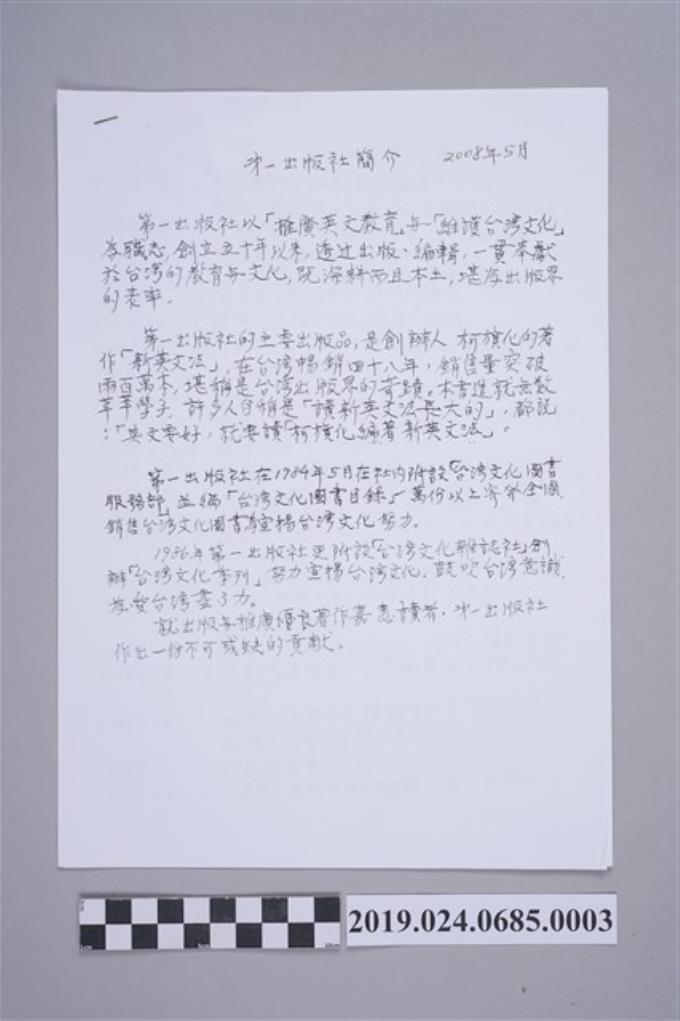 第一出版社簡介 2008年5月
第一出版社以「推廣英文教育」與「維護台湾文化」
為職志,創立五十年以來,透过出版、編輯,一貫奉獻
於台湾的教育与文化,既深耕而且本土,堪為出版界
的表率。
第一出版社的主要出版品,是創辦人 柯旗化的著
作「新英文法」,在台湾暢銷四十八年,銷售量突破
兩百萬本,堪稱是台湾出版界的奇蹟。本書造就無數
莘莘學子,許多人自稱是「讀新英文法長大的」,都說
:「英文要好,就要讀「柯旗化編著新英文法」。
第一出版社在1984年5月在社内附設「台湾文化圖書
服務部」並編「台湾文化圖書目錄」萬份以上寄於全國,
銷售台湾文化圖書為宣揚台湾文化努力.
1986年第一出版社更附設「台湾文化雜誌社」創
辦「台湾文化季刊」努力宣揚台湾文化,鼓吹台湾意識,
為愛台湾盡了力。
就出版与推廣優良著作嘉惠讀者,第一出版社
作出一份不可或缺的貢獻。
2019.024.0685.0003